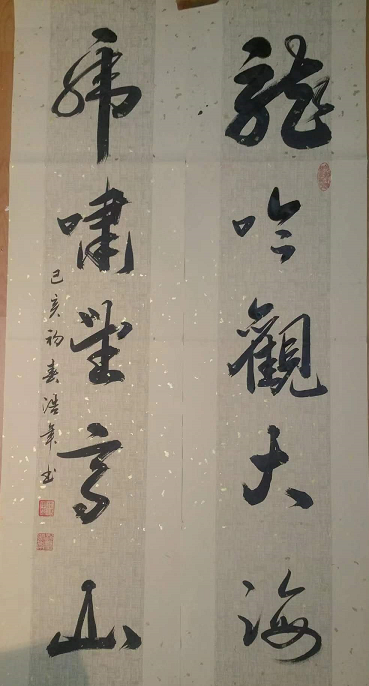 龍吟觀大海
虎嘯望高山
己亥初春浩年书